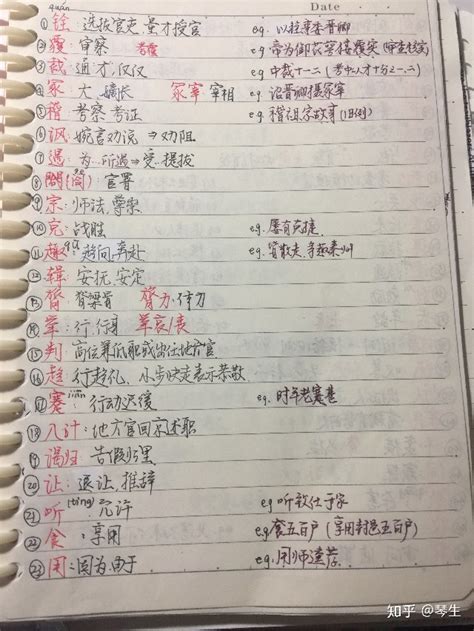 Date
quán
①铨：选拔官吏、量才授官
②覆：审察 考覆
③裁：通才，仅仅 eg. 中裁十一二（考中人才十分之一、二）
④冢：大、嫡长 冢宰 宰相
⑤稽：考察、考证
⑥讽：婉言劝说 ⇒ 劝阻
⑦遇：为…所遇 ⇒ 受…提拔
官署
⑨宗：师法、学宗
⑩克：战胜 eg. 屡有克捷
⑪趣：趋向、奔赴
⑫辑：安抚、安定
⑬膂：脊梁骨 膂力：体力
⑭举：行、行身 举哀/丧
⑮判：高位兼低职或出任地方官
⑯趋：行趋礼，小步快走表示恭敬
jiǎn
⑰蹇：行动迟缓 eg. 时年老蹇甚
⑱入计：地方官回京述职
⑲谒归：告假归里
⑳让：退让、推辞
㉑听(tīng)：允许 eg. 听致仕于家
㉒食：享用 eg. 食五百户（享用封邑五百户）
㉓用：因为、由于 eg. 用师逵荐
知乎 @琴生